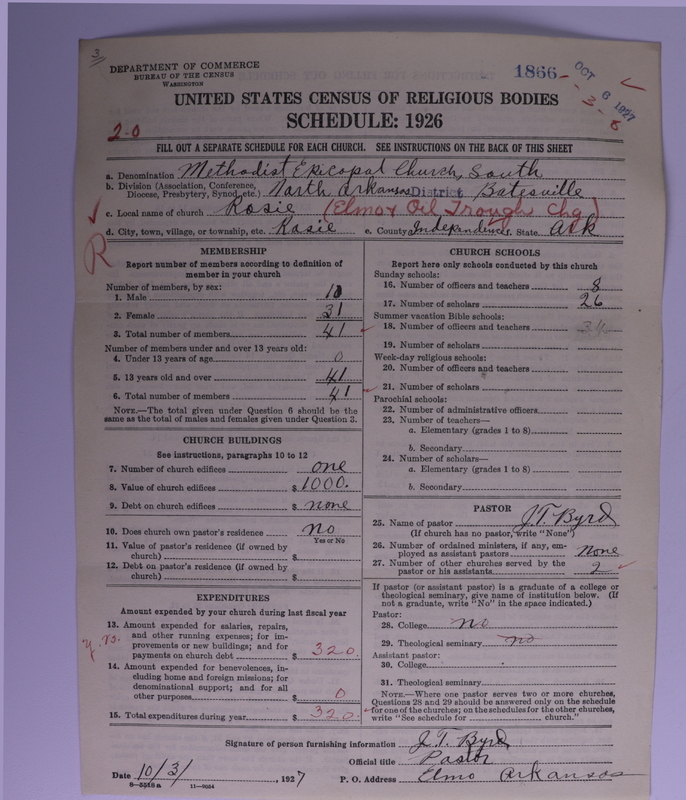 3
DEPARTMENT OF COMMERCE
BUREAU OF THE CENSUS
WASHINGTON
1866 - 3 - 8
OCT 6 1927
UNITED STATES CENSUS OF RELIGIOUS BODIES
SCHEDULE: 1926
2-0
FILL OUT A SEPARATE SCHEDULE FOR EACH CHURCH. SEE INSTRUCTIONS ON THE BACK OF THIS SHEET
a. Denomination Methodist Episcopal Church, South
b. Division (Association, Conference, Diocese, Presbytery, Synod, etc.) North Arkansas District Batesville
c. Local name of church Rosie (Elmo & Oil Trough Chg)
d. City, town, village, or township, etc. Rosie e. County Independence f. State Ark
R
MEMBERSHIP
Report number of members according to definition of
member in your church
Number of members, by sex:
1. Male 10
2. Female 31
3. Total number of members 41
Number of members under and over 13 years old:
4. Under 13 years of age 0
5. 13 years old and over 41
6. Total number of members 41
NOTE.—The total given under Question 6 should be the
same as the total of males and females given under Question 3.
CHURCH BUILDINGS
See instructions, paragraphs 10 to 12
7. Number of church edifices one
8. Value of church edifices $ 1000.
9. Debt on church edifices $ none
10. Does church own pastor's residence? no
Yes or No
11. Value of pastor's residence (if owned by
church) $
12. Debt on pastor's residence (if owned by
church) $
EXPENDITURES
Amount expended by your church during last fiscal year
13. Amount expended for salaries, repairs,
and other running expenses; for im-
provements or new buildings; and for
payments on church debt $ 320.
14. Amount expended for benevolences, in-
cluding home and foreign missions; for
denominational support; and for all
other purposes $ 0
15. Total expenditures during year $ 320.
CHURCH SCHOOLS
Report here only schools conducted by this church
Sunday schools:
16. Number of officers and teachers 8
17. Number of scholars 26
Summer vacation Bible schools:
18. Number of officers and teachers
19. Number of scholars
Week-day religious schools:
20. Number of officers and teachers
21. Number of scholars
Parochial schools:
22. Number of administrative officers
23. Number of teachers—
a. Elementary (grades 1 to 8)
b. Secondary
24. Number of scholars—
a. Elementary (grades 1 to 8)
b. Secondary
PASTOR
25. Name of pastor J. T. Byrd
(If church has no pastor, write "None")
26. Number of ordained ministers, if any, em-
ployed as assistant pastors None
27. Number of other churches served by the
pastor or his assistants 2
If pastor (or assistant pastor) is a graduate of a college or
theological seminary, give name of institution below. (If
not a graduate, write "No" in the space indicated.)
Pastor:
28. College no
29. Theological seminary no
Assistant pastor:
30. College
31. Theological seminary
NOTE.—Where one pastor serves two or more churches,
Questions 28 and 29 should be answered only on the schedule
for one of the churches; on the schedules for the other churches,
write "See schedule for church."
Signature of person furnishing information J. T. Byrd
Official title Pastor
Date 10/3/, 1927 P. O. Address Elmo Arkansas
8—5518a 11—9054